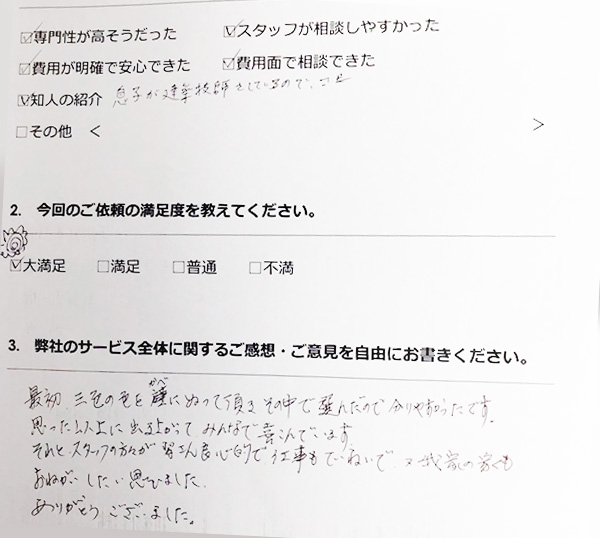 ☑専門性が高そうだった ☑スタッフが相談しやすかった
☑費用が明確で安心できた ☑費用面で相談できた
☑知人の紹介 息子が建築技師をしているので、
□その他 < >
2. 今回のご依頼の満足度を教えてください。
☑大満足 □満足 □普通 □不満
3. 弊社のサービス全体に関するご感想・ご意見を自由にお書きください。
かべ
最初 三色の色を 壁にぬって頂き その中で選んだので 分りやすかったです。
思った以上に 出来上がって みんなで 喜こんでいます。
それと スタッフの方々が 皆さん良心的で 仕事もていねいで 又我家の
おねがいしたい思いました。
ありがとうございました。